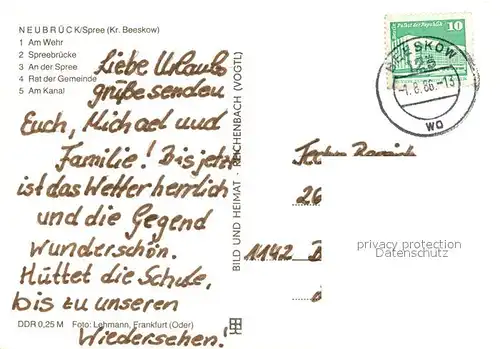 NEUBRÜCK/Spree (Kr. Beeskow)
1 Am Wehr
2 Spreebrücke
3 An der Spree
4 Rat der Gemeinde
5 Am Kanal
Liebe Urlaubs
grüße senden
Euch, Michael und
Familie! Bis jetzt
ist das Wetter herrlich
und die Gegend
wunderschön.
Hüttet die Schule,
bis zu unseren
Wiedersehen!
DDR 0,25 M Foto: Lehmann, Frankfurt (Oder)
BILD UND HEIMAT - REICHENBACH (VOGTL)
10
BEESKOW
-1.8.86.-13
wa
26
1142
privacy protection
DATENSCHUTZ